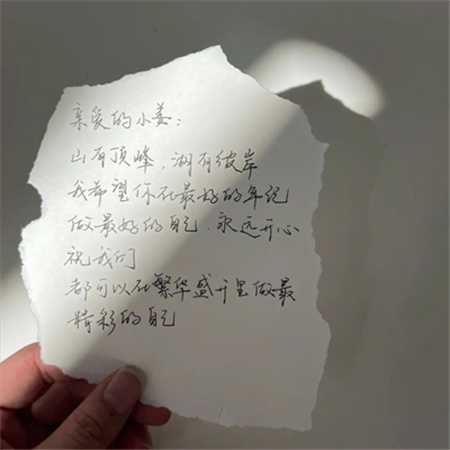 亲爱的小姜：
山有顶峰，湖有彼岸
我希望你在最好的年纪
做最好的自己，永远开心
祝我们
都可以在繁华盛开里做最
精彩的自己